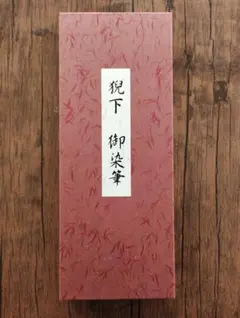 猊下 御染筆